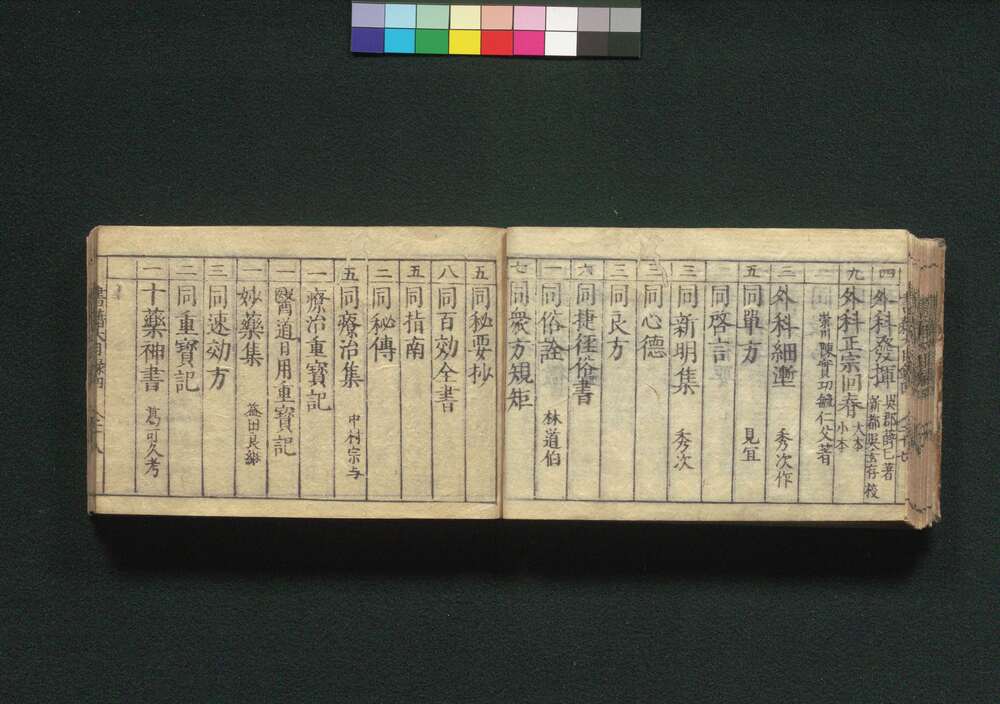 四 外科發揮 呉郡薛己著 新都呉玄有校
九 外科正宗回春 大本 小本
崇川陳實功毓仁父著
三 外科細塹 秀次作
五 同單方 見宜
二 同啓言
三 同新明集 秀次
三 同心德
三 同良方
六 同捷徑俗書
一 同俗詮 林道伯
七 同衆方規矩
五 同秘要抄
八 同百効全書
五 同指南
二 同秘傳
五 同療治集 中村宗与
一 療治重寶記
一 醫道日用重寶記
一 妙藥集 益田良繼
三 同速効方
二 同重寶記
一 十藥神書 葛可久考
書籍大目録四 八